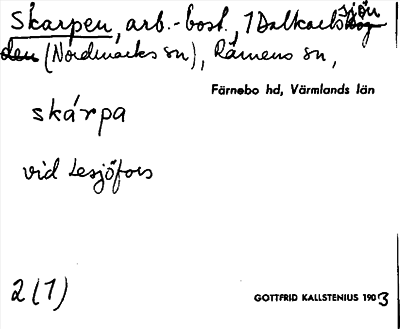 Skarpen, arb.-bost., 1 Dalkarlssjön
(Nordmarks sn), Rämens sn,
Färnebo hd, Värmlands län
skárpa
vid Lesjöfors
2 (1)
GOTTFRID KALLSTENIUS 1903